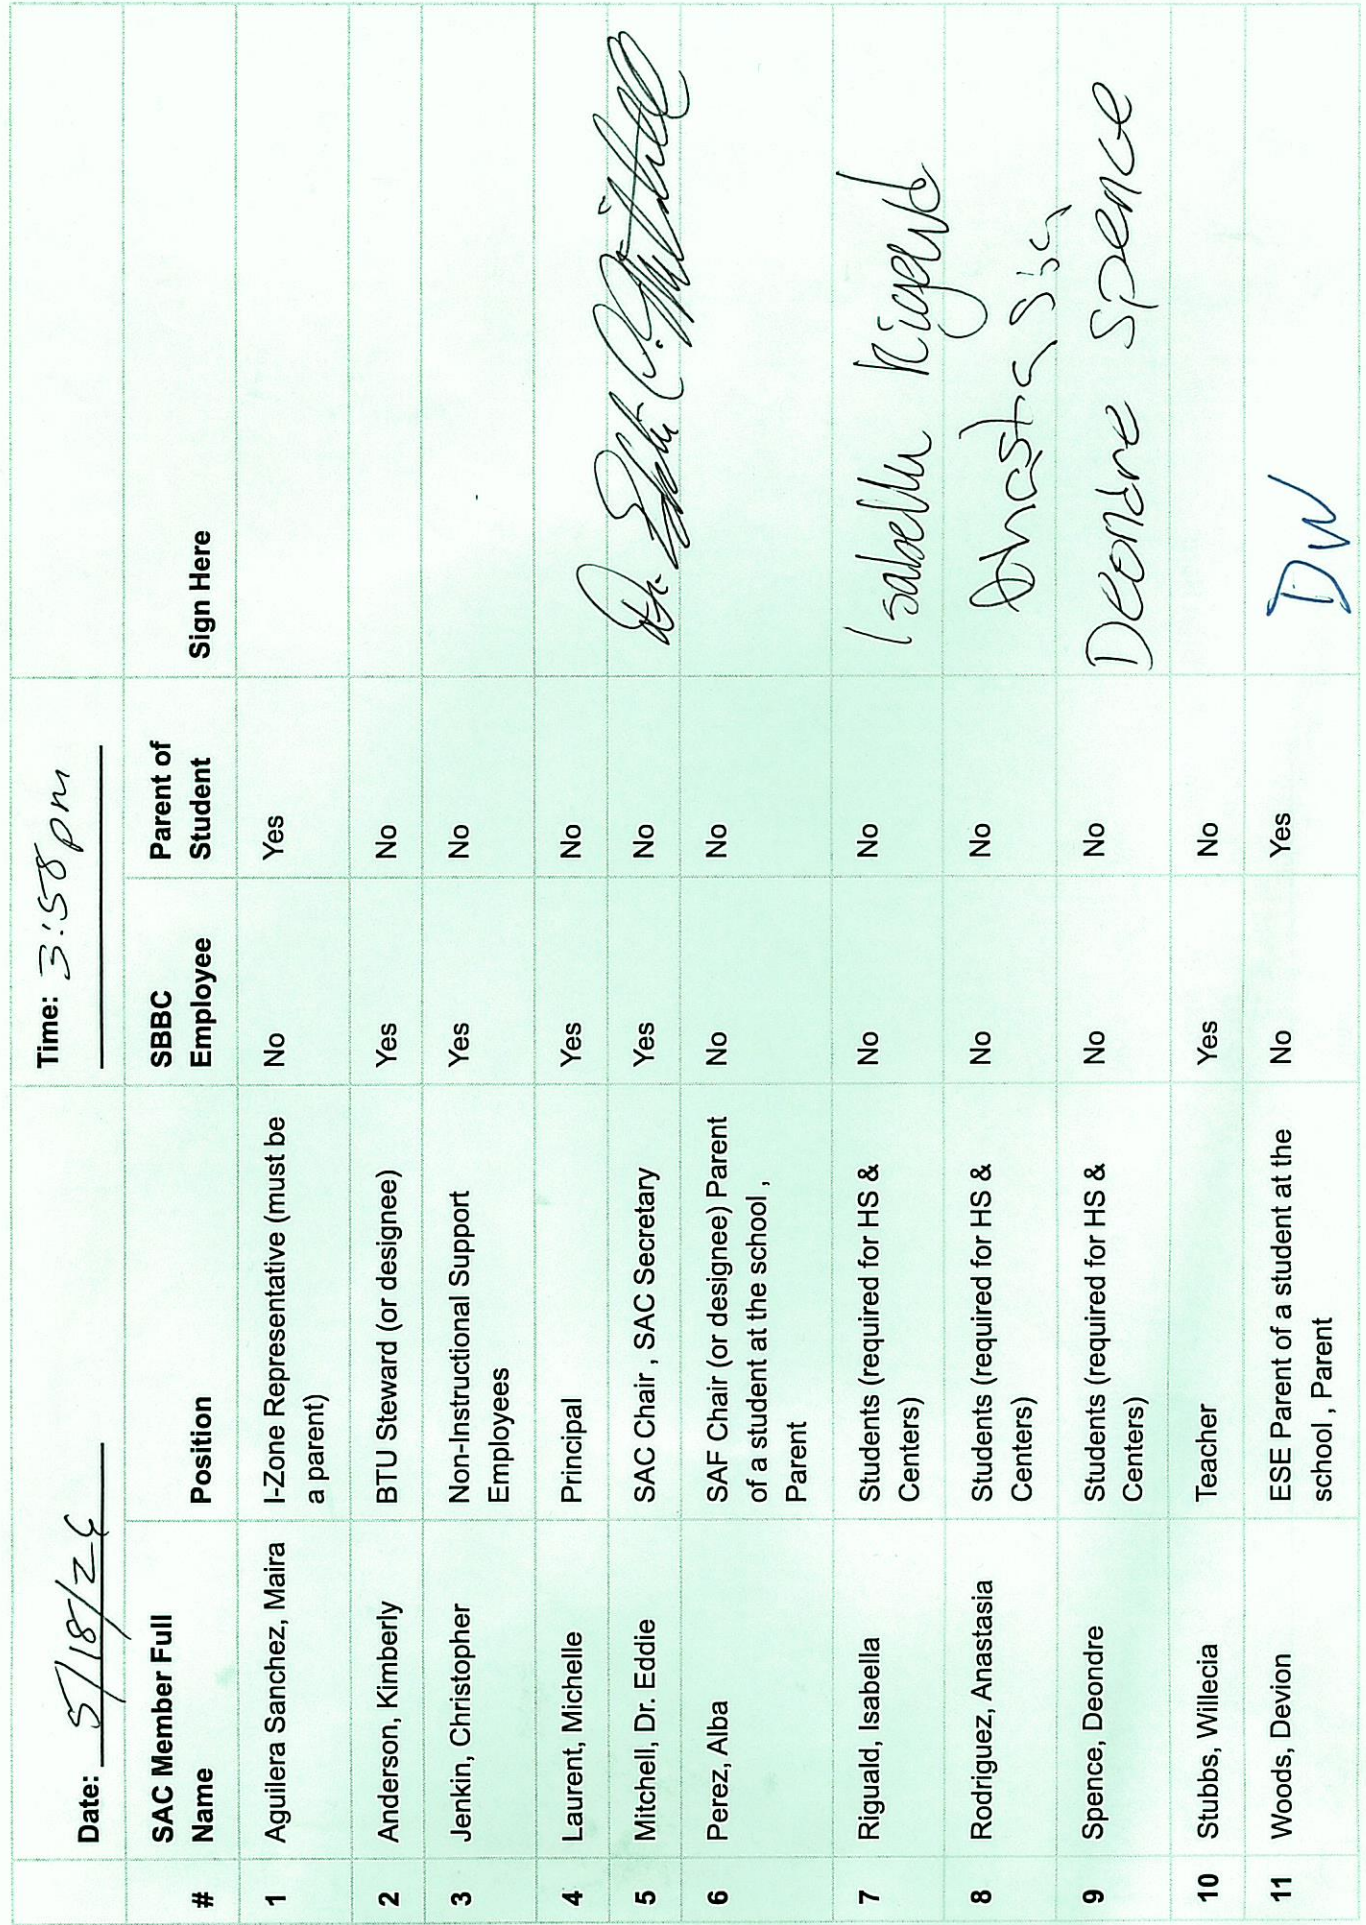 Date: 5/18/26 Time: 3:58pm
# SAC Member Full Name Position SBBC Employee Parent of Student Sign Here
1 Aguilera Sanchez, Maira I-Zone Representative (must be a parent) No Yes
2 Anderson, Kimberly BTU Steward (or designee) Yes No
3 Jenkin, Christopher Non-Instructional Support Employees Yes No
4 Laurent, Michelle Principal Yes No
5 Mitchell, Dr. Eddie SAC Chair , SAC Secretary Yes No Dr.
6 Perez, Alba SAF Chair (or designee) Parent of a student at the school , Parent No No
7 Riguald, Isabella Students (required for HS & Centers) No No Isabella Riguald
8 Rodriguez, Anastasia Students (required for HS & Centers) No No Anastasia
9 Spence, Deondre Students (required for HS & Centers) No No Deondre Spence
10 Stubbs, Willecia Teacher Yes No
11 Woods, Devion ESE Parent of a student at the school , Parent No Yes DW